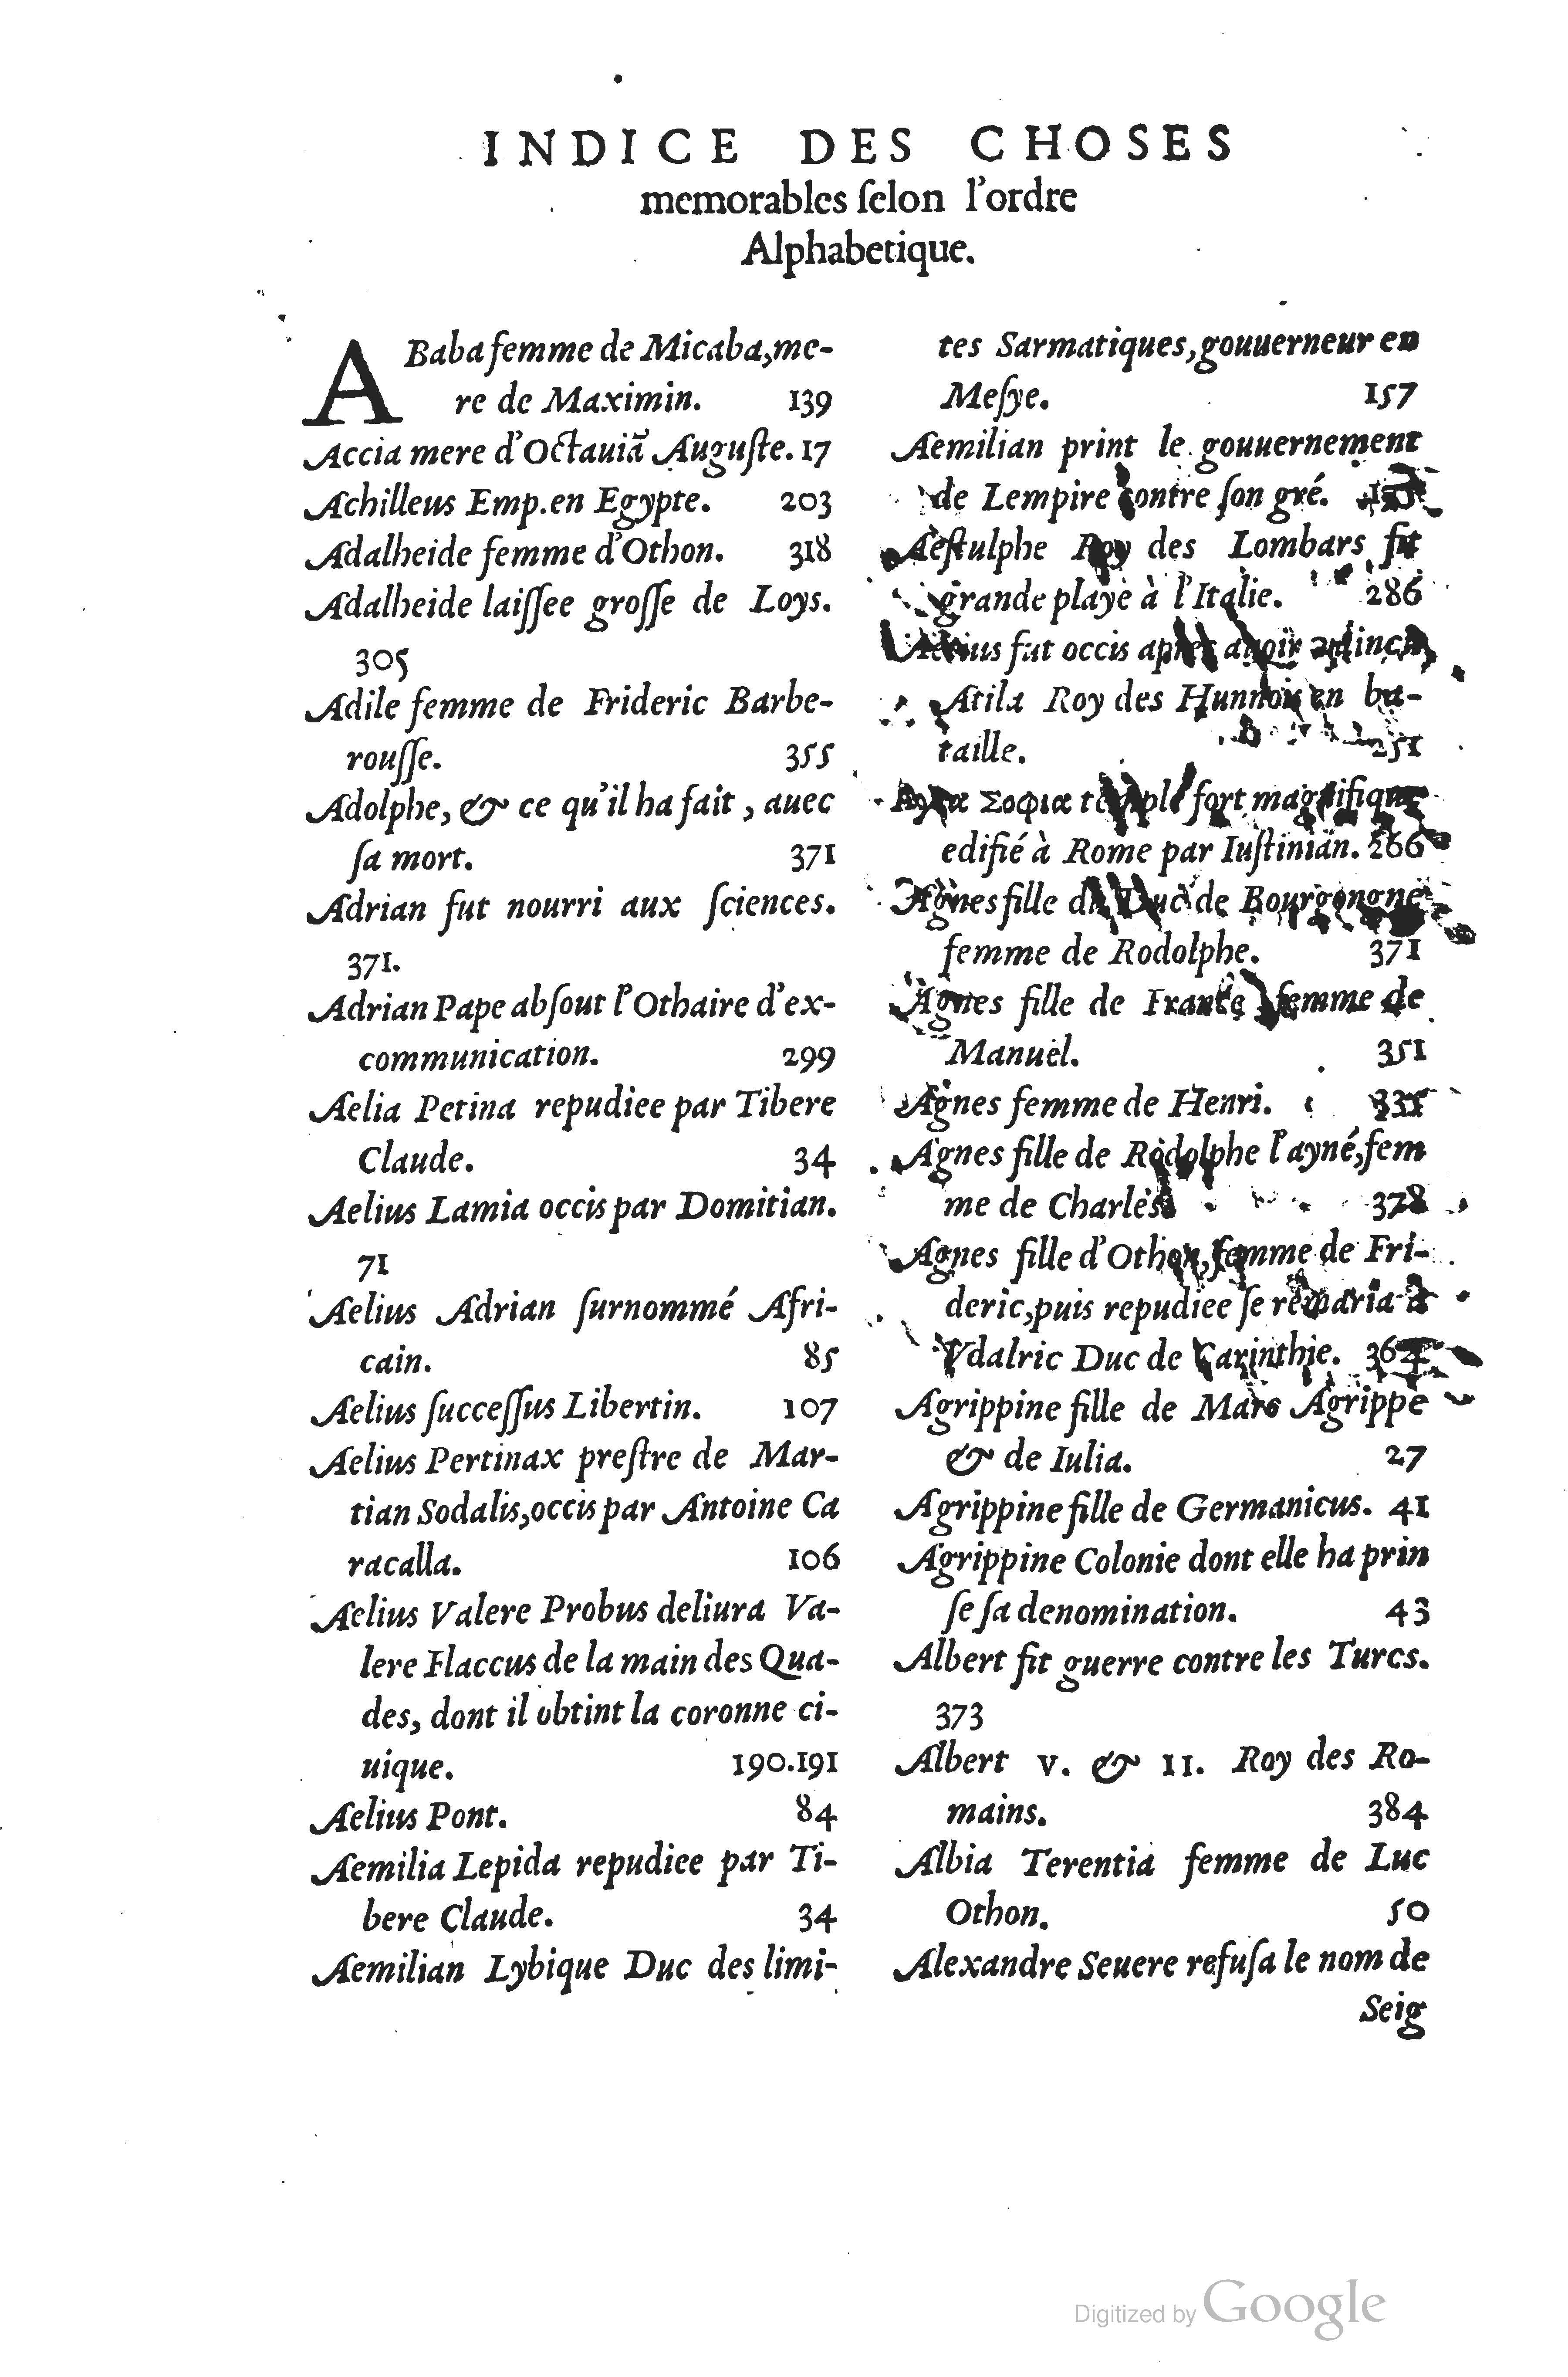 INDICE DES CHOSES
memorables ſelon l'ordre
Alphabetique.
ABaba femme de Micaba, me-
re de Maximin. 139
Accia mere d'Octauiã Auguſte. 17
Achilleus Emp. en Egypte. 203
Adalheide femme d'Othon. 318
Adalheide laiſſee groſſe de Loys.
305
Adile femme de Frideric Barbe-
rouſſe. 355
Adolphe, & ce qu'il ha fait, auec
ſa mort. 371
Adrian fut nourri aux ſciences.
371.
Adrian Pape abſout l'Othaire d'ex-
communication. 299
Aelia Petina repudiee par Tibere
Claude. 34
Aelius Lamia occis par Domitian.
71
Aelius Adrian ſurnommé Afri-
cain. 85
Aelius ſucceſſus Libertin. 107
Aelius Pertinax preſtre de Mar-
tian Sodalis, occis par Antoine Ca
racalla. 106
Aelius Valere Probus deliura Va-
lere Flaccus de la main des Qua-
des, dont il obtint la coronne ci-
uique. 190.191
Aelius Pont. 84
Aemilia Lepida repudiee par Ti-
bere Claude. 34
Aemilian Lybique Duc des limi-
tes Sarmatiques, gouuerneur en
Meſye. 157
Aemilian print le gouuernement
de Lempire contre ſon gré.
Aeſtulphe Roy des Lombars fit
grande playe à l'Italie. 286
fut occis apres auoir
Atila Roy des Hunnois en ba-
taille. 251
Αγια Σοφια temple fort magnifique
edifié à Rome par Iuſtinian. 266
Agnes fille du Duc de Bourgongne
femme de Rodolphe. 371
Agnes fille de France femme de
Manuel. 351
Agnes femme de Henri.
Agnes fille de Rodolphe l'ayné, fem
me de Charles. 378
Agnes fille d'Othon, femme de Fri-
deric, puis repudiee ſe remaria à
Vdalric Duc de Carinthie.
Agrippine fille de Marc Agrippe
& de Iulia. 27
Agrippine fille de Germanicus. 41
Agrippine Colonie dont elle ha prin
ſe ſa denomination. 43
Albert fit guerre contre les Turcs.
373
Albert V. & II. Roy des Ro-
mains. 384
Albia Terentia femme de Luc
Othon. 50
Alexandre Seuere refuſa le nom de
Seig
Digitized by Google